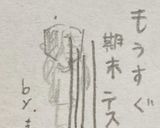 もうすぐ
期末テス
by.